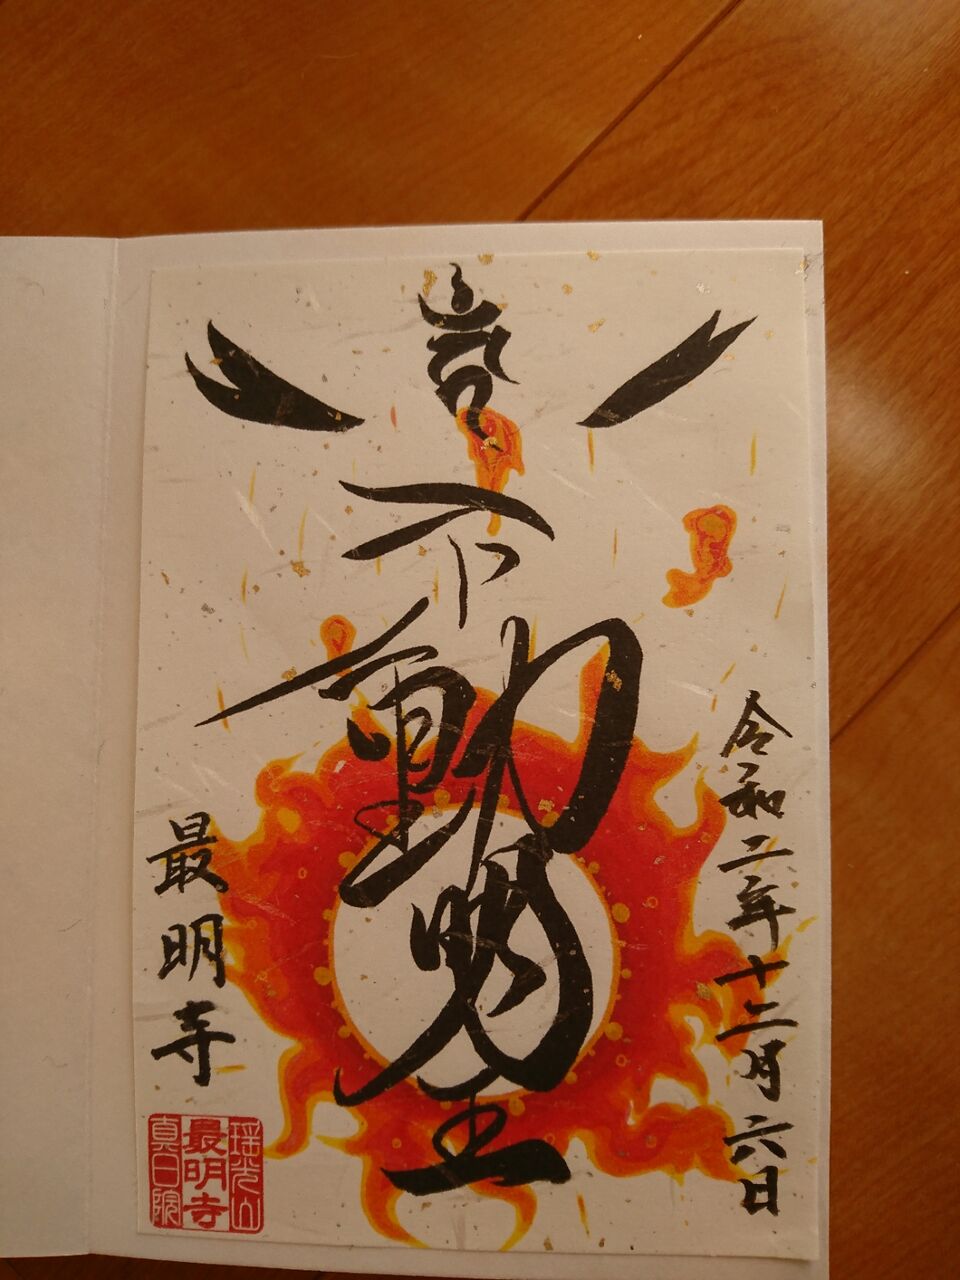 令和二年十二月六日
不動明王
最明寺
瑶光山
最明寺
真言院